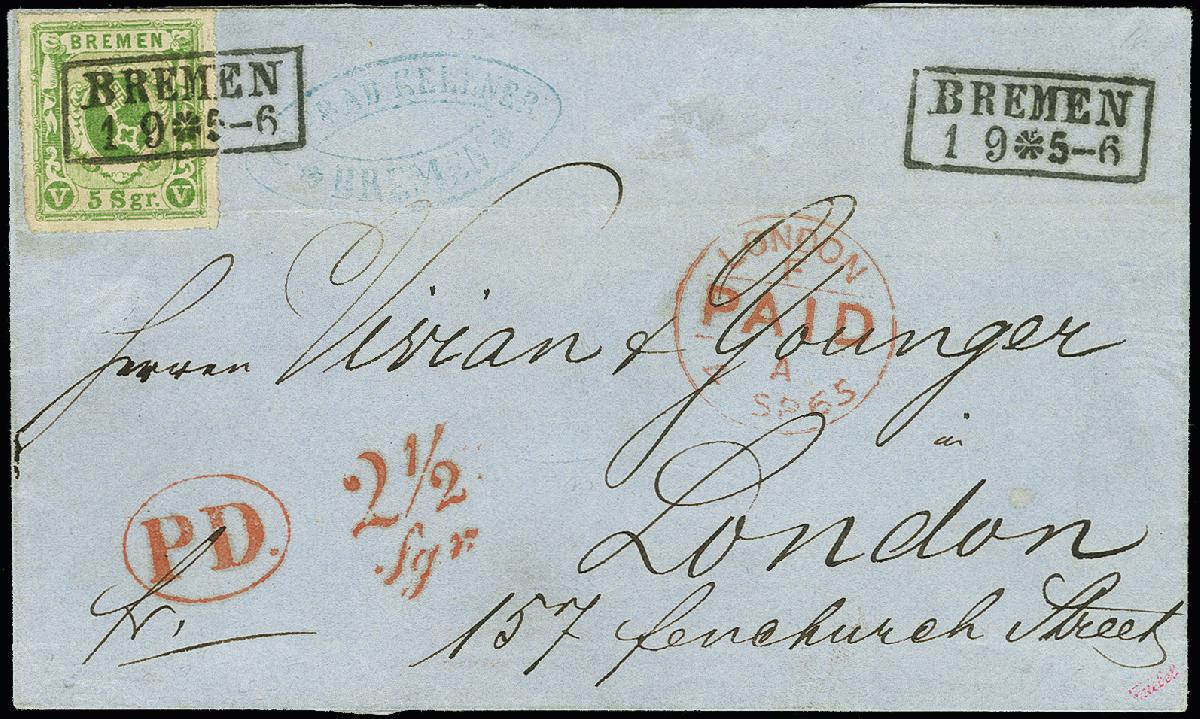 BREMEN
V 5 Sgr. V
BREMEN
1 9 5-6
RAD KELLNER
BREMEN
BREMEN
1 9 5-6
LONDON
F
PAID
A
SP 65
Herren Vivian & Younger
in
London
157 fenchurch Street
P.D.
2 1/2
Sgr.
fr.